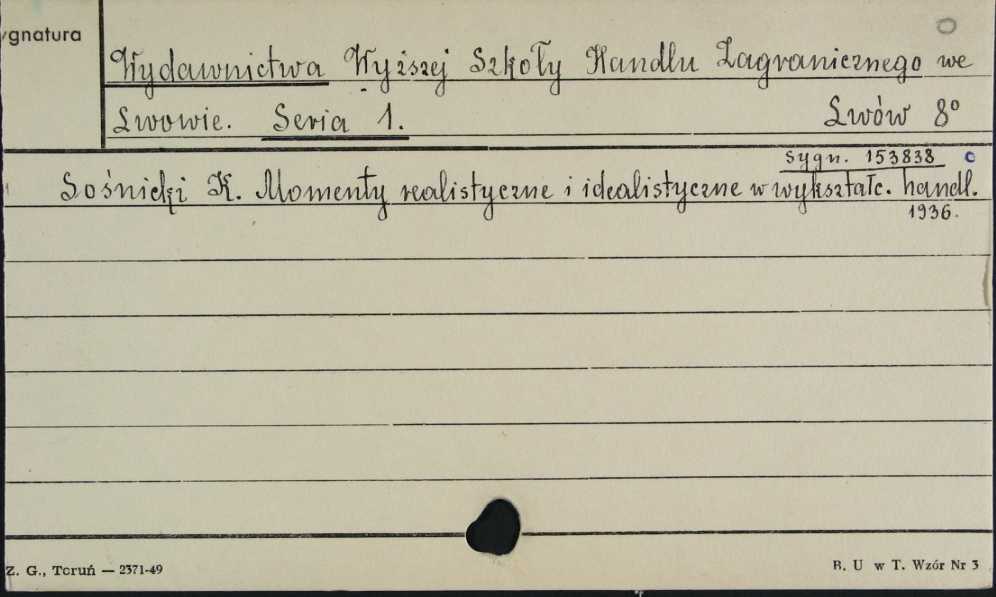 ygnatura
Wydawnictwa Wyższej Szkoły Handlu Zagranicznego we
Lwowie. Seria 1. Lwów 8°
Sygn. 153838
Sośnicki K. Momenty realistyczne i idealistyczne w wykształc. handl.
1936.
Z. G., Toruń — 2371-49
B. U w T. Wzór Nr 3